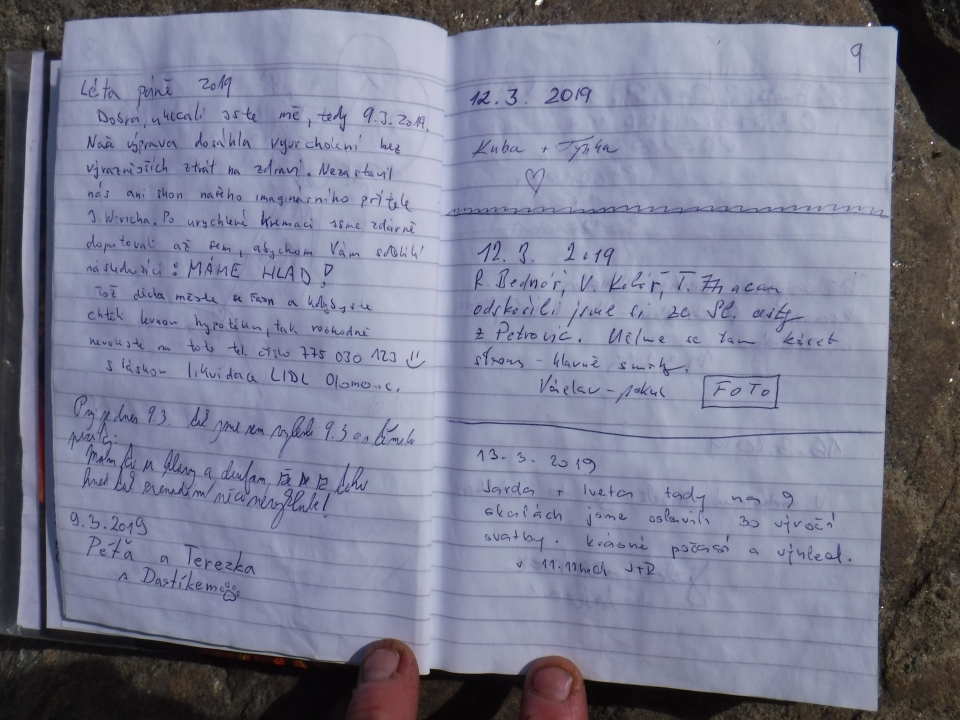 Léta páně 2019
Dobrá, uhecali jste mě, tedy 9.3.2019.
Naše výprava dosáhla vyvrcholení bez
výraznějších ztrát na zdraví. Nezastavil
nás ani skon našeho imaginárního přítele
J. W-richa. Po urychlené kremaci jsme zdárně
doputovali až sem, abychom Vám sdělili
následující: MÁME HLAD!
Tož dícha mějte se fajn a kdybyste
chtěli levnou hypotéku, tak rozhodně
nevolejte na toto tel. číslo 775 030 123
S láskou likvidace LIDL Olomouc.
Prý je dnes 9.3. Až jsme sem 9.3
a doufám, že
hned
9.3.2019
Péťa a Terezka
s Dastíkem
9
12.3.2019
Kuba + Týnka
12.3. 2019
R. Bednář, V. Kolář, T.
odskočili jsme si za Sl. cesty
z Petrovic. Učíme se tam kácet
stromy - hlavně smrky.
Václav - pokus FOTO
13.3.2019
Jarda + Iveta tady na 9
skalách jsme oslavili 30 výročí
svatby. Krásné počasí a výhled.
v 11.11hod J+I